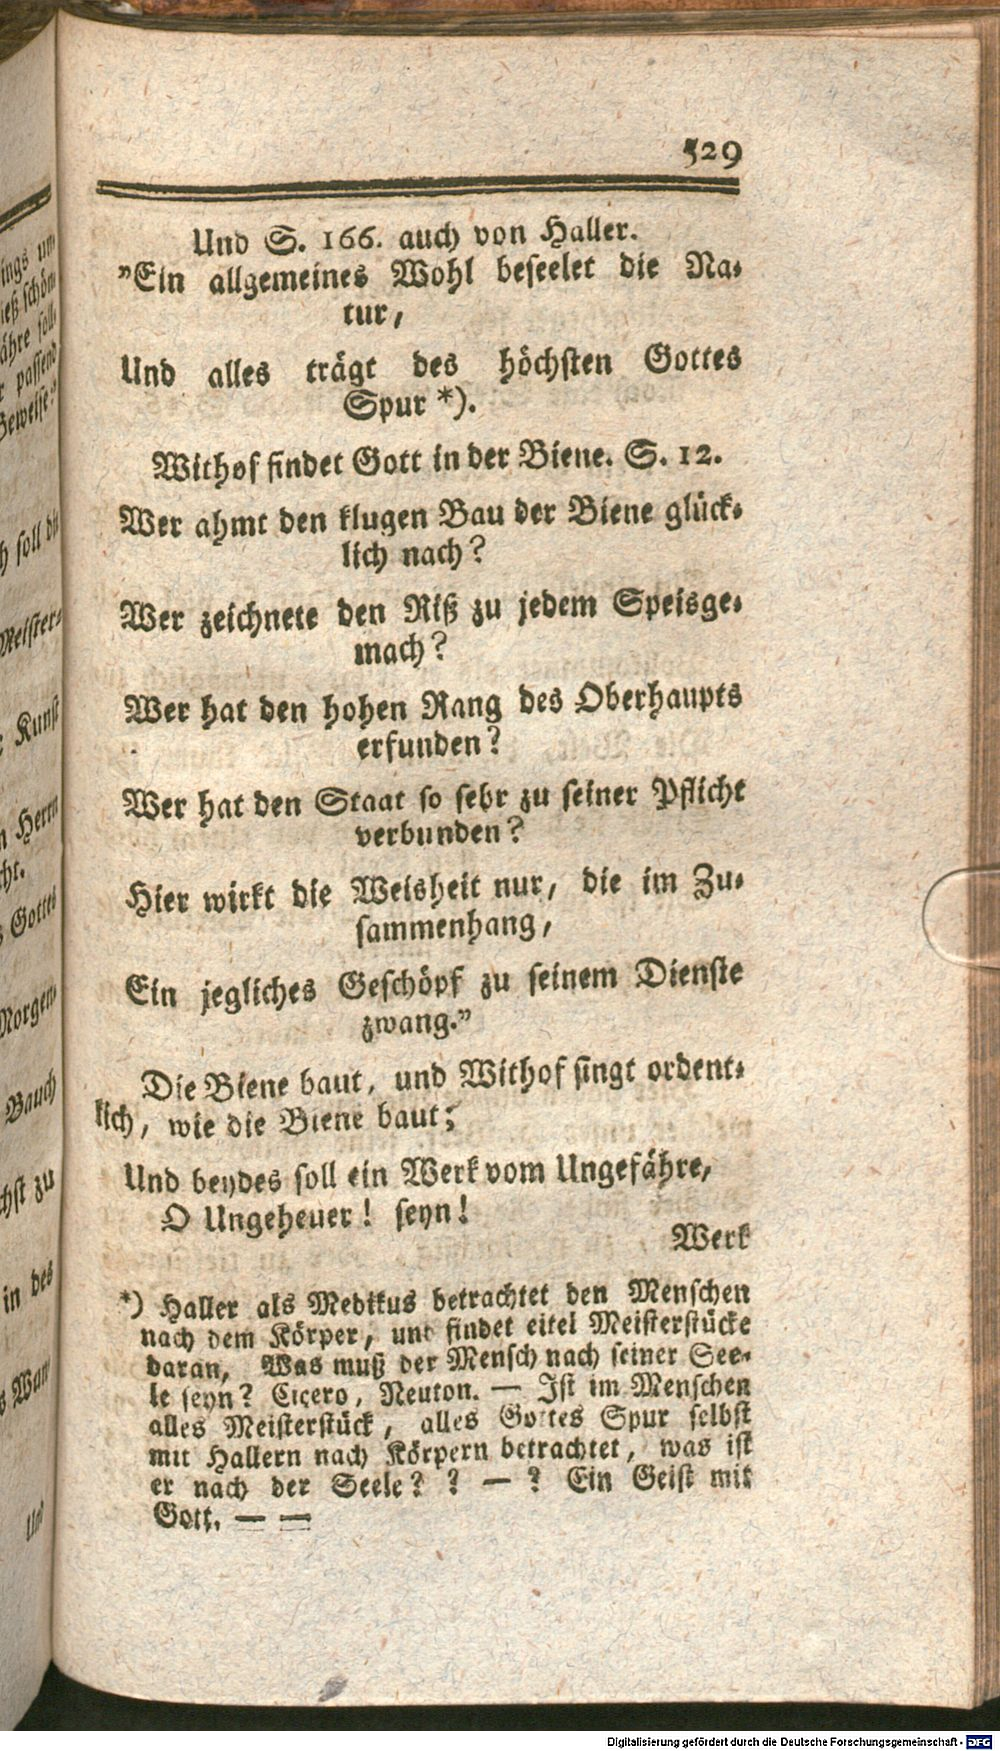 529
Und S. 166. auch von Haller.
"Ein allgemeines Wohl beseelet die Na-
tur,
Und alles trägt des höchsten Gottes
Spur *).
Withof findet Gott in der Biene. S. 12.
Wer ahmt den klugen Bau der Biene glück-
lich nach?
Wer zeichnete den Riß zu jedem Speisge-
mach?
Wer hat den hohen Rang des Oberhaupts
erfunden?
Wer hat den Staat so sehr zu seiner Pflicht
verbunden?
Hier wirkt die Weisheit nur, die im Zu-
sammenhang,
Ein jegliches Geschöpf zu seinem Dienste
zwang."
Die Biene baut, und Withof singt ordent-
lich, wie die Biene baut;
Und beydes soll ein Werk vom Ungefähre,
O Ungeheuer! seyn!
Werk
*) Haller als Medikus betrachtet den Menschen
nach dem Körper, und findet eitel Meisterstücke
daran, Was muß der Mensch nach seiner See-
le seyn? Cicero, Neuton. — Ist im Menschen
alles Meisterstück, alles Gottes Spur selbst
mit Hallern nach Körpern betrachtet, was ist
er nach der Seele? ? — ? Ein Geist mit
Gott. — —
ings um
ieß schön
ähre soll
r passend
Beweise?
h soll die
Meister-
Kunst
n Herrn
cht.
Gottes
Morgen-
Bauch
chst zu
in des
s Wan
Und
Digitalisierung gefördert durch die Deutsche Forschungsgemeinschaft - DFG